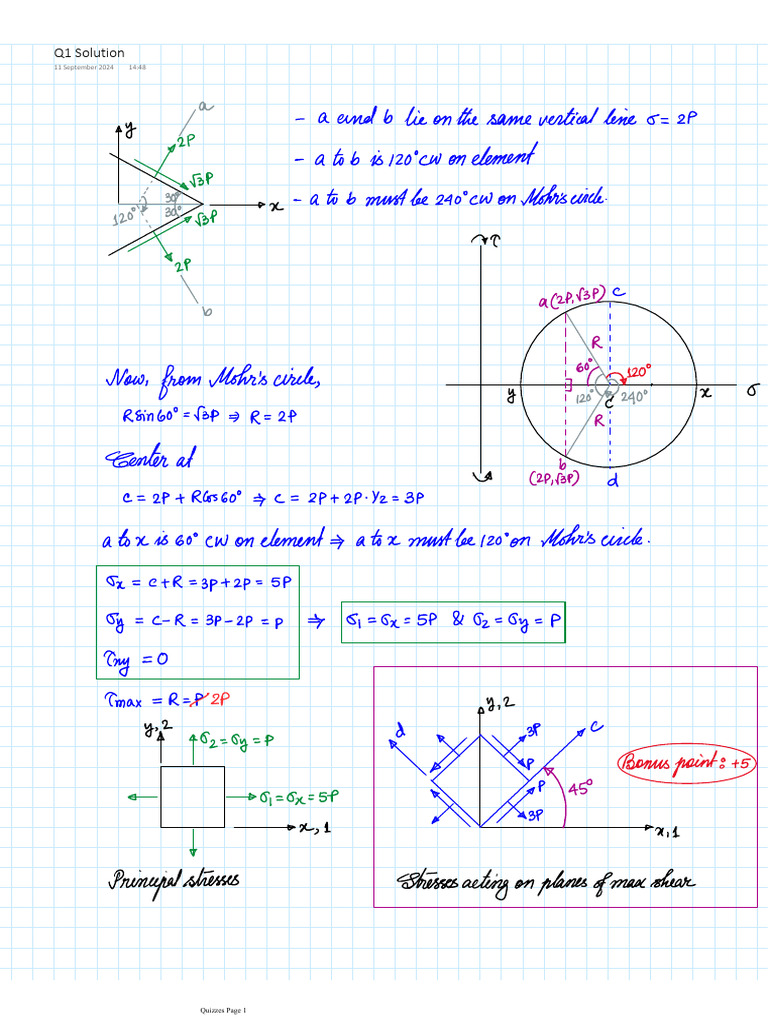 Q1 Solution
11 September 2024 14:48
- a and b lie on the same vertical line σ = 2P
- a to b is 120° cw on element
- a to b must be 240° cw on Mohr's circle.
y
a
2P
√3P
30°
30°
120°
x
√3P
2P
b
τ
a(2P,√3P) c
R
60°
120°
y
120°
C
240°
x
σ
R
b
(2P,√3P)
d
Now, from Mohr's circle,
R sin60° = √3P ⇒ R = 2P
Center at
C = 2P + R Cos 60° ⇒ C = 2P + 2P · 1/2 = 3P
a to x is 60° cw on element ⇒ a to x must be 120° on Mohr's circle.
σx = C + R = 3P + 2P = 5P
σy = C - R = 3P - 2P = P ⇒ σ1 = σx = 5P & σ2 = σy = P
τny = 0
τmax = R = P 2P
y, 2
σ2 = σy = P
σ1 = σx = 5P
x, 1
Principal stresses
y, 2
d
3P
c
P
P
45°
3P
x, 1
Bonus point: +5
Stresses acting on planes of max shear
Quizzes Page 1